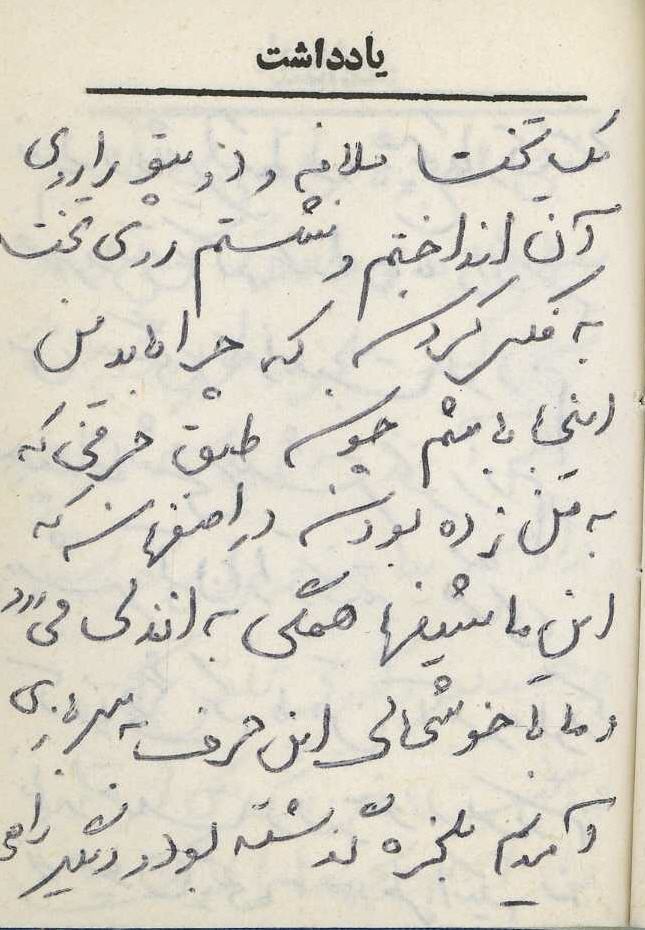 یادداشت
یک تخت با ملافه و از پتو را روی
آن انداختم و نشستم روی تخت
به فکر کردن که چرا باید من
اینجا باشم چون طبق حرفی که
به من زده بودن در اصفهان که
این ماشینها همگی به اندی می‌رود
و ما با خوشحالی این حرف به سربازی
آمدیم بلخره گذشته بود و دیگر راهی